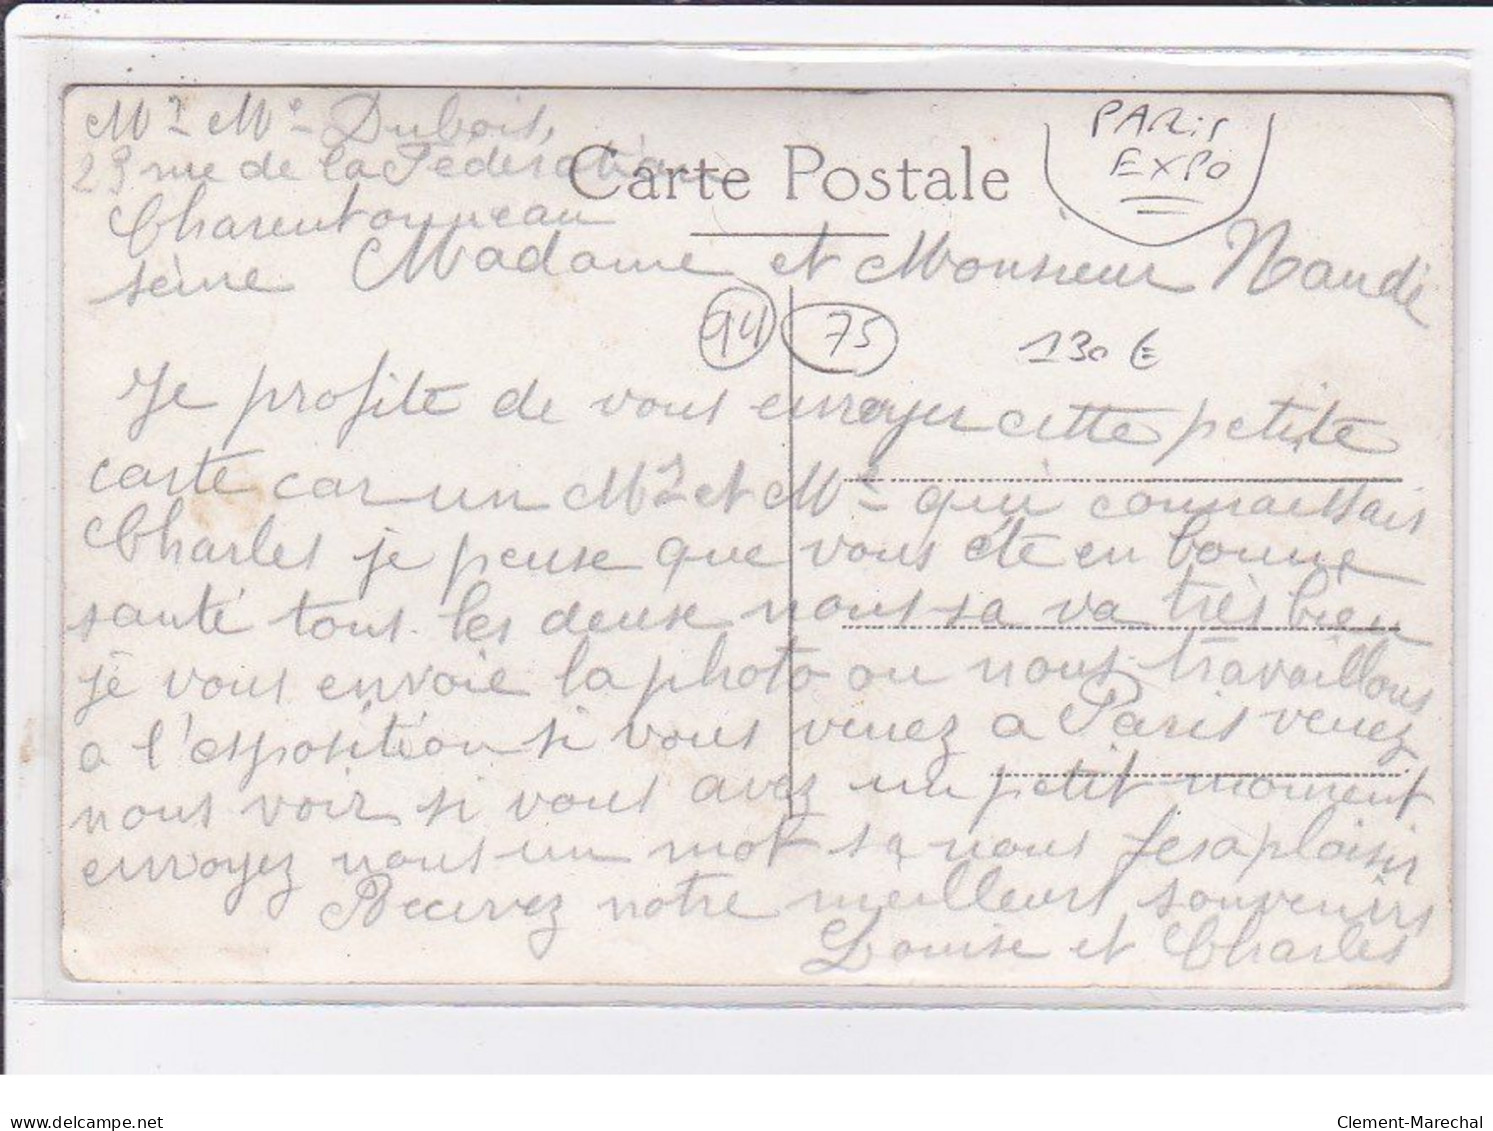 Mr Me Dubois,
23 rue de la Fédération
Charentonneau
seine
Carte Postale
PARis
EXPO
Madame et Monsieur Naudé
94 75
130 €
Je profite de vous envoyer cette petite
carte car un Mr et Me qui connaissais
Charles je pense que vous ete en bonne
santé tous les deuse nous sa va très bien
je vous envoie la photo ou nous travaillons
a l'esposition si vous venez a Paris venez
nous voir si vous avez un petit moment
envoyez nous un mot sa nous fesa plaisir
Recevez notre meilleurs souvenirs
Louise et Charles
delcampe.net
Clement-Marechal